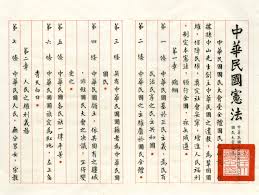 中華民國憲法
中華民國國民大會受全體國民
之付託依據孫中山先生創立中華民國之遺教為鞏固
國權保障民權奠定社會安寧增進人民福利
制定本憲法頒行全國永矢咸遵
第一章 總綱
第一條 中華民國基於三民主義為民有
民治民享之民主共和國
第二條 中華民國之主權屬於國民全體
第三條 具有中華民國國籍者為中華民國
國民
第四條 中華民國領土依其固有之疆域非
經國民大會之決議不得變更之
第五條 中華民國各民族一律平等
第六條 中華民國國旗定為紅地左上角
青天白日
第二章 人民之權利義務
第七條